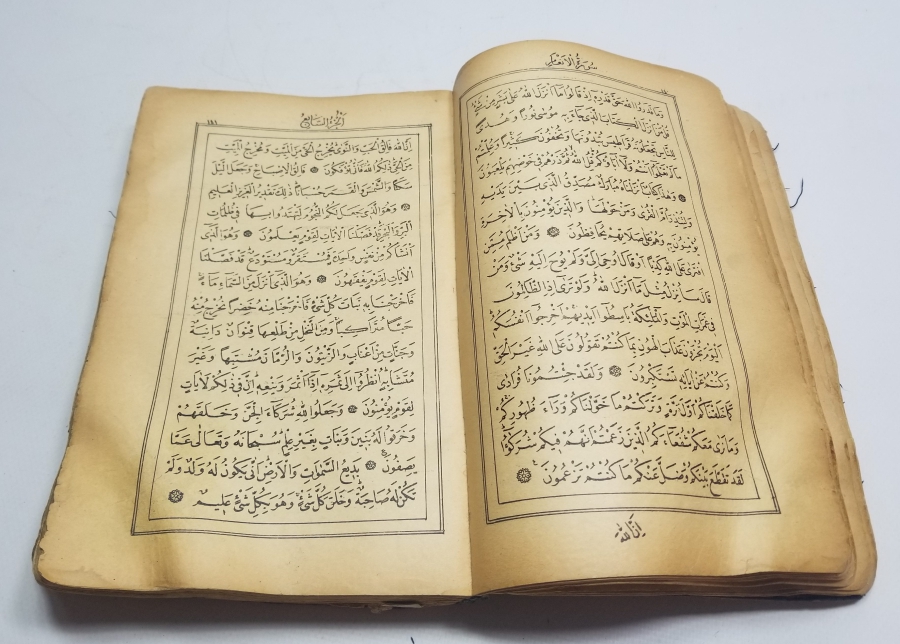 سُورَةُ الْاَنْعَامِ
وَمَا قَدَرُوا اللّٰهَ حَقَّ قَدْرِهٖ اِذْ قَالُوا مَا اَنْزَلَ اللّٰهُ عَلٰى بَشَرٍ مِنْ شَيْءٍ
قُلْ مَنْ اَنْزَلَ الْكِتَابَ الَّذٖى جَاءَ بِهٖ مُوسٰى نُورًا وَهُدًى
لِلنَّاسِ تَجْعَلُونَهُ قَرَاطٖيسَ تُبْدُونَهَا وَتُخْفُونَ كَثٖيرًا وَعُلِّمْتُمْ
مَا لَمْ تَعْلَمُوا اَنْتُمْ وَلَا اٰبَاؤُكُمْ قُلِ اللّٰهُ ثُمَّ ذَرْهُمْ فٖى خَوْضِهِمْ يَلْعَبُونَ
۞ وَهٰذَا كِتَابٌ اَنْزَلْنَاهُ مُبَارَكٌ مُصَدِّقُ الَّذٖى بَيْنَ يَدَيْهِ
وَلِتُنْذِرَ اُمَّ الْقُرٰى وَمَنْ حَوْلَهَا وَالَّذٖينَ يُؤْمِنُونَ بِالْاٰخِرَةِ
يُؤْمِنُونَ بِهٖ وَهُمْ عَلٰى صَلَاتِهِمْ يُحَافِظُونَ ۞ وَمَنْ اَظْلَمُ مِمَّنِ
افْتَرٰى عَلَى اللّٰهِ كَذِبًا اَوْ قَالَ اُوحِىَ اِلَىَّ وَلَمْ يُوحَ اِلَيْهِ شَيْءٌ وَمَنْ
قَالَ سَاُنْزِلُ مِثْلَ مَا اَنْزَلَ اللّٰهُ وَلَوْ تَرٰى اِذِ الظَّالِمُونَ
فٖى غَمَرَاتِ الْمَوْتِ وَالْمَلٰئِكَةُ بَاسِطُوا اَيْدٖيهِمْ اَخْرِجُوا اَنْفُسَكُمْ
اَلْيَوْمَ تُجْزَوْنَ عَذَابَ الْهُونِ بِمَا كُنْتُمْ تَقُولُونَ عَلَى اللّٰهِ غَيْرَ الْحَقِّ
وَكُنْتُمْ عَنْ اٰيَاتِهٖ تَسْتَكْبِرُونَ ۞ وَلَقَدْ جِئْتُمُونَا فُرَادٰى
كَمَا خَلَقْنَاكُمْ اَوَّلَ مَرَّةٍ وَتَرَكْتُمْ مَا خَوَّلْنَاكُمْ وَرَاءَ ظُهُورِكُمْ
وَمَا نَرٰى مَعَكُمْ شُفَعَاءَكُمُ الَّذٖينَ زَعَمْتُمْ اَنَّهُمْ فٖيكُمْ شُرَكٰؤُا
لَقَدْ تَقَطَّعَ بَيْنَكُمْ وَضَلَّ عَنْكُمْ مَا كُنْتُمْ تَزْعُمُونَ ۞
اِنَّ اللّٰهَ
اَلْجُزْءُ السَّابِعُ
١٤١
اِنَّ اللّٰهَ فَالِقُ الْحَبِّ وَالنَّوٰى يُخْرِجُ الْحَىَّ مِنَ الْمَيِّتِ وَمُخْرِجُ الْمَيِّتِ
مِنَ الْحَىِّ ذٰلِكُمُ اللّٰهُ فَاَنّٰى تُؤْفَكُونَ ۞ فَالِقُ الْاِصْبَاحِ وَجَعَلَ الَّيْلَ
سَكَنًا وَالشَّمْسَ وَالْقَمَرَ حُسْبَانًا ذٰلِكَ تَقْدٖيرُ الْعَزٖيزِ الْعَلٖيمِ
۞ وَهُوَ الَّذٖى جَعَلَ لَكُمُ النُّجُومَ لِتَهْتَدُوا بِهَا فٖى ظُلُمَاتِ
الْبَرِّ وَالْبَحْرِ قَدْ فَصَّلْنَا الْاٰيَاتِ لِقَوْمٍ يَعْلَمُونَ ۞ وَهُوَ الَّذٖى
اَنْشَاَكُمْ مِنْ نَفْسٍ وَاحِدَةٍ فَمُسْتَقَرٌّ وَمُسْتَوْدَعٌ قَدْ فَصَّلْنَا
الْاٰيَاتِ لِقَوْمٍ يَفْقَهُونَ ۞ وَهُوَ الَّذٖى اَنْزَلَ مِنَ السَّمَاءِ مَاءً
فَاَخْرَجْنَا بِهٖ نَبَاتَ كُلِّ شَيْءٍ فَاَخْرَجْنَا مِنْهُ خَضِرًا نُخْرِجُ مِنْهُ
حَبًّا مُتَرَاكِبًا وَمِنَ النَّخْلِ مِنْ طَلْعِهَا قِنْوَانٌ دَانِيَةٌ
وَجَنَّاتٍ مِنْ اَعْنَابٍ وَالزَّيْتُونَ وَالرُّمَّانَ مُشْتَبِهًا وَغَيْرَ
مُتَشَابِهٍ اُنْظُرُوا اِلٰى ثَمَرِهٖ اِذَا اَثْمَرَ وَيَنْعِهٖ اِنَّ فٖى ذٰلِكُمْ لَاٰيَاتٍ
لِقَوْمٍ يُؤْمِنُونَ ۞ وَجَعَلُوا لِلّٰهِ شُرَكَاءَ الْجِنَّ وَخَلَقَهُمْ
وَخَرَقُوا لَهُ بَنٖينَ وَبَنَاتٍ بِغَيْرِ عِلْمٍ سُبْحَانَهُ وَتَعَالٰى عَمَّا
يَصِفُونَ ۞ بَدٖيعُ السَّمٰوَاتِ وَالْاَرْضِ اَنّٰى يَكُونُ لَهُ وَلَدٌ وَلَمْ
تَكُنْ لَهُ صَاحِبَةٌ وَخَلَقَ كُلَّ شَيْءٍ وَهُوَ بِكُلِّ شَيْءٍ عَلٖيمٌ ۞